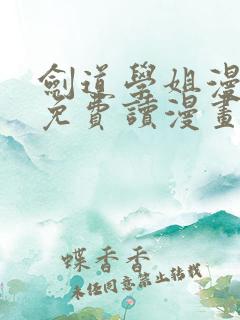 劍道學姐漫
免費讀漫畫
蝶香香
未經同意禁止轉載